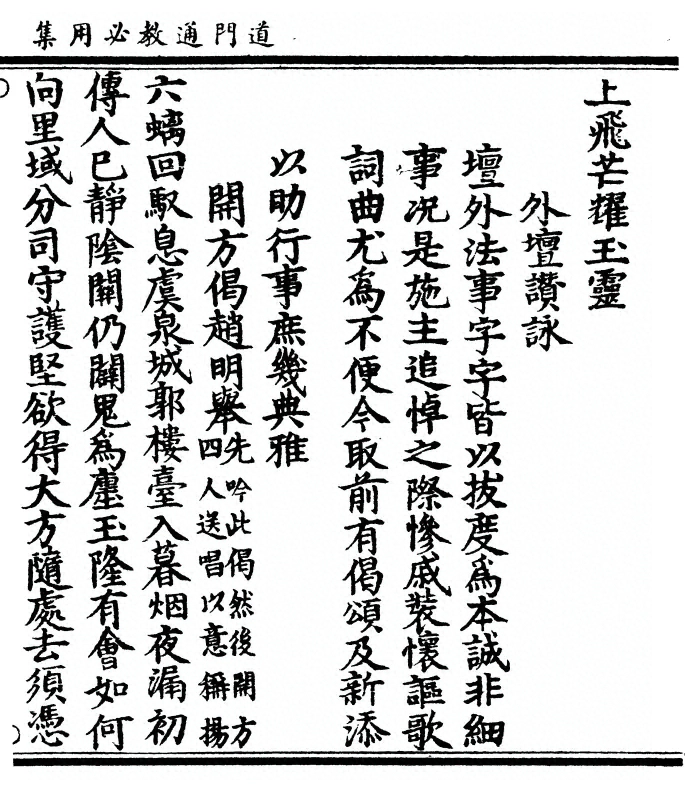 道門通教必用集
上飛芒耀玉靈
外壇讚詠
壇外法事字字皆以拔度爲本誠非細
事况是施主追悼之際慘戚裝懷謳歌
詞曲尤爲不便今取前有偈頌及新添
以助行事庶幾典雅
開方偈趙明舉先吟此偈然後開方四人送唱以意稱揚
六螭回馭息虞泉城郭樓臺入暮烟夜漏初
傳人已靜陰關仍闢鬼爲廛玉隆有會如何
向里域分司守護堅欲得大方隨處去須憑